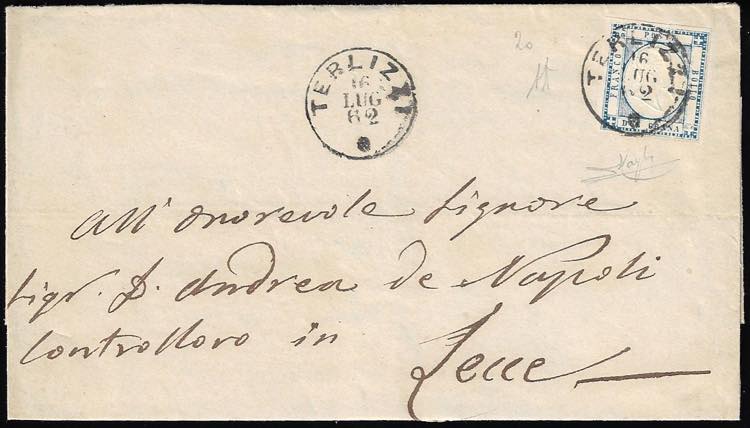 20
TERLIZZI
16
LUG
62
TERLIZZI
16
UG
62
FRANCO
PO
BOLLO
D GRANA
All' Onorevole Signore
Sigr. D. Andrea de Napoli
Controlloro in
Lecce